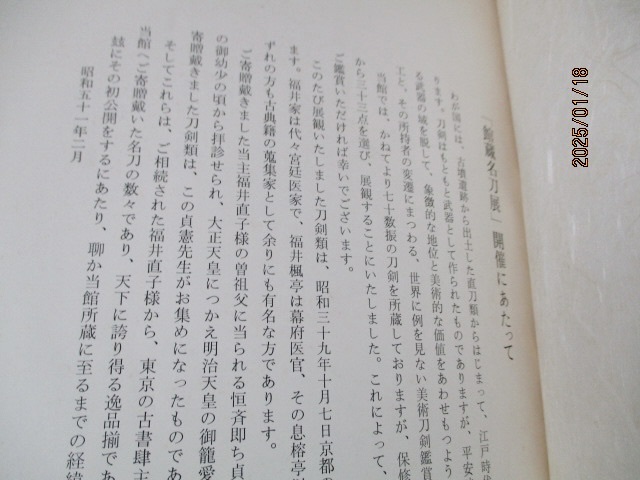 「館蔵名刀展」開催にあたって
わが国には、古墳遺跡から出土した直刀類からはじまって、江戸時代
ります。刀剣はもともと武器として作られたものでありますが、平安
る武器の域を脱して、象徴的な地位と美術的な価値をあわせもつよう
工と、その所持者の変遷にまつわる、世界に例を見ない美術刀剣鑑賞
当館では、かねてより七十数振の刀剣を所蔵しておりますが、保修
から三十三点を選び、展観することにいたしました。これによって、
ご鑑賞いただければ幸いでございます。
このたび展観いたしました刀剣類は、昭和三十九年十月七日京都の
ます。福井家は代々宮廷医家で、福井楓亭は幕府医官、その息榕亭
ずれの方も古典籍の蒐集家として余りにも有名な方であります。
ご寄贈戴きました当主福井直子様の曽祖父に当られる恒斉即ち貞
の御幼少の頃から拝診せられ、大正天皇につかえ明治天皇の御寵愛
寄贈戴きました刀剣類は、この貞憲先生がお集めになったものであ
そしてこれらは、ご相続された福井直子様から、東京の古書肆主
当館へご寄贈戴いた名刀の数々であり、天下に誇り得る逸品揃であ
玆にその初公開をするにあたり、聊か当館所蔵に至るまでの経緯
昭和五十一年二月
2025/01/18